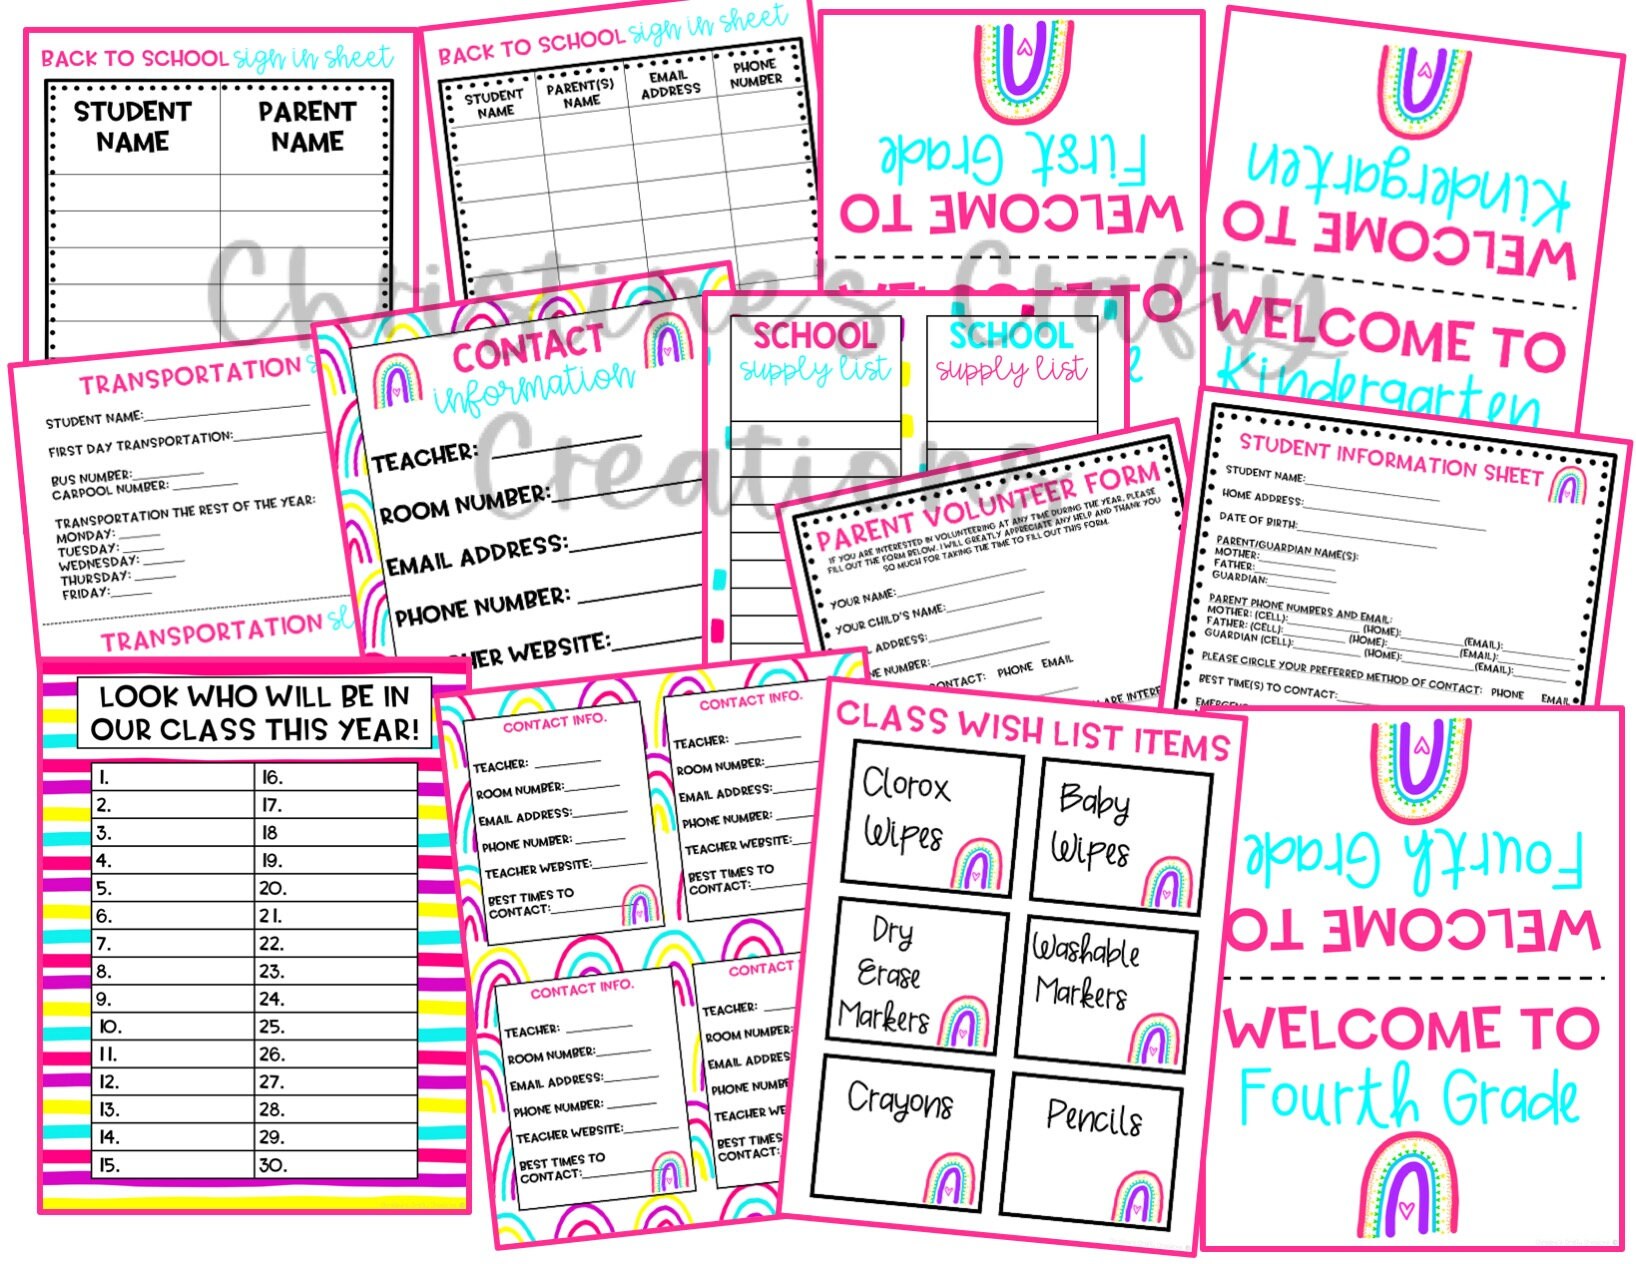 BACK TO SCHOOL sign in sheet
STUDENT NAME
PARENT NAME
BACK TO SCHOOL sign in sheet
STUDENT NAME
PARENT(S) NAME
EMAIL ADDRESS
PHONE NUMBER
WELCOME TO
First Grade
WELCOME TO
WELCOME TO
Kindergarten
WELCOME TO
Kindergarten
Christine's Crafty
Creations
TRANSPORTATION
STUDENT NAME:
FIRST DAY TRANSPORTATION:
BUS NUMBER:
CARPOOL NUMBER:
TRANSPORTATION THE REST OF THE YEAR:
MONDAY:
TUESDAY:
WEDNESDAY:
THURSDAY:
FRIDAY:
TRANSPORTATION
CONTACT
information
TEACHER:
ROOM NUMBER:
EMAIL ADDRESS:
PHONE NUMBER:
WEBSITE:
SCHOOL
supply list
SCHOOL
supply list
PARENT VOLUNTEER FORM
IF YOU ARE INTERESTED IN VOLUNTEERING AT ANY TIME DURING THE YEAR, PLEASE
FILL OUT THE FORM BELOW. I WILL GREATLY APPRECIATE ANY HELP AND THANK YOU
SO MUCH FOR TAKING THE TIME TO FILL OUT THIS FORM.
YOUR NAME:
YOUR CHILD'S NAME:
ADDRESS:
NUMBER:
CONTACT: PHONE EMAIL
ARE
STUDENT INFORMATION SHEET
STUDENT NAME:
HOME ADDRESS:
DATE OF BIRTH:
PARENT/GUARDIAN NAME(S):
MOTHER:
FATHER:
GUARDIAN:
PARENT PHONE NUMBERS AND EMAIL:
MOTHER: (CELL): (HOME): (EMAIL):
FATHER: (CELL): (HOME): (EMAIL):
GUARDIAN (CELL): (HOME): (EMAIL):
PLEASE CIRCLE YOUR PREFERRED METHOD OF CONTACT: PHONE EMAIL
BEST TIME(S) TO CONTACT:
LOOK WHO WILL BE IN
OUR CLASS THIS YEAR!
1. 16.
2. 17.
3. 18
4. 19.
5. 20.
6. 21.
7. 22.
8. 23.
9. 24.
10. 25.
11. 26.
12. 27.
13. 28.
14. 29.
15. 30.
CONTACT INFO.
TEACHER:
ROOM NUMBER:
EMAIL ADDRESS:
PHONE NUMBER:
TEACHER WEBSITE:
BEST TIMES TO
CONTACT:
CONTACT INFO.
TEACHER:
ROOM NUMBER:
EMAIL ADDRESS:
PHONE NUMBER:
TEACHER WEBSITE:
BEST TIMES TO
CONTACT:
CONTACT INFO.
TEACHER:
ROOM NUMBER:
EMAIL ADDRESS:
PHONE NUMBER:
TEACHER WEBSITE:
BEST TIMES TO
CONTACT:
CONTACT
TEACHER:
ROOM NUMBER:
EMAIL
PHONE
TEACHER
BEST TIMES
CONTACT:
CLASS WISH LIST ITEMS
Clorox
Wipes
Baby
Wipes
Dry
Erase
Markers
Washable
Markers
Crayons
Pencils
WELCOME TO
Fourth Grade
WELCOME TO
Fourth Grade